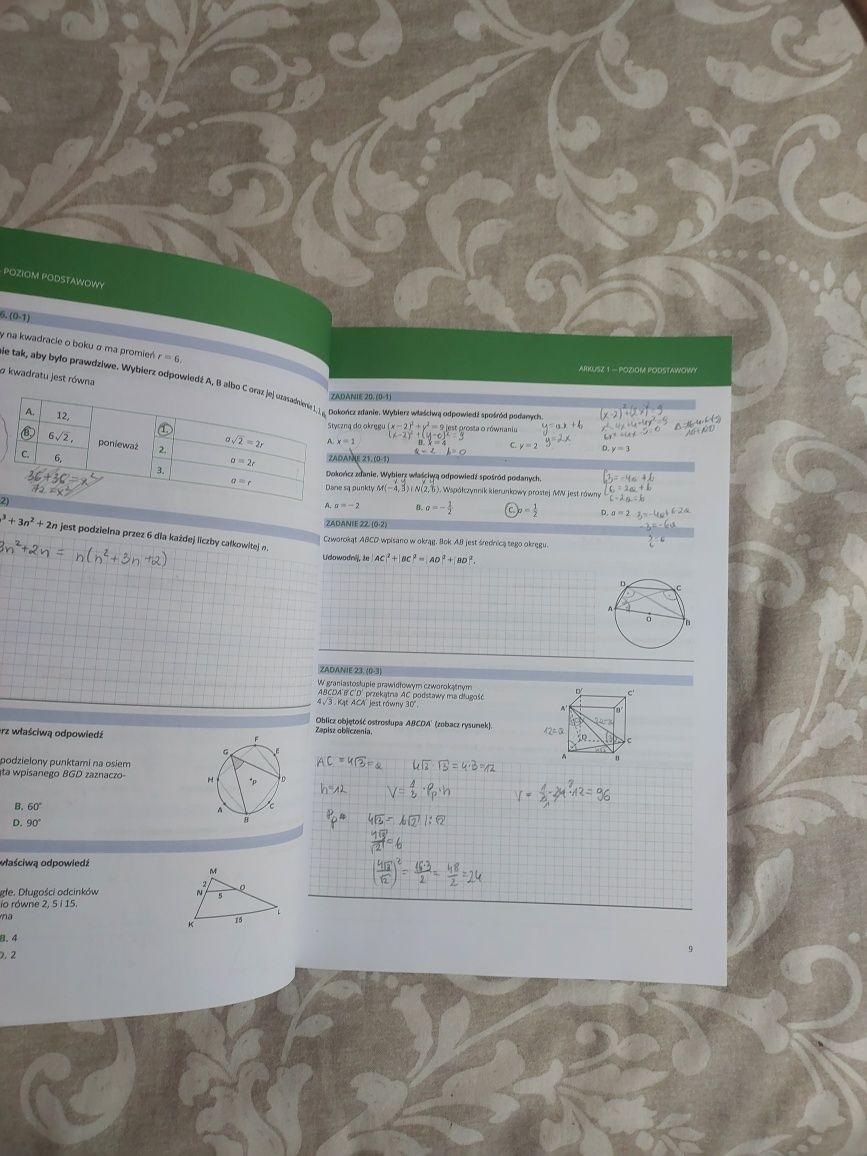 POZIOM PODSTAWOWY
6. (0-1)
y na kwadracie o boku a ma promień r = 6.
nie tak, aby było prawdziwe. Wybierz odpowiedź A, B albo C oraz jej uzasadnienie 1, 2
a kwadratu jest równa
A. 12, 1. a√2 = 2r
B. 6√2, ponieważ 2. a = 2r
C. 6, 3. a = r
36+36=x²
72=x²
2)
n³ + 3n² + 2n jest podzielna przez 6 dla każdej liczby całkowitej n.
3n²+2n = n(n²+3n+2)
rz właściwą odpowiedź
podzielony punktami na osiem
ta wpisanego BGD zaznaczo-
B. 60°
D. 90°
F
G E
H P D
A C
B
właściwą odpowiedź
głe. Długości odcinków
io równe 2, 5 i 15.
na
B. 4
D. 2
M
2
N O
5
K 15 L
ARKUSZ 1 — POZIOM PODSTAWOWY
ZADANIE 20. (0-1)
Dokończ zdanie. Wybierz właściwą odpowiedź spośród podanych.
Styczną do okręgu (x − 2)² + y² = 9 jest prosta o równaniu
(x-2)²+(y-0)²=9
y=ax+b
y=2x
A. x = 1 B. x = 4 C. y = 2 D. y = 3
a=2 b=0
ZADANIE 21. (0-1)
Dokończ zdanie. Wybierz właściwą odpowiedź spośród podanych.
x y x y
Dane są punkty M(−4, 3) i N(2, 6). Współczynnik kierunkowy prostej MN jest równy
A. a = −2 B. a = −1/2 C. a = 1/2 D. a = 2
3=-4a+b
6=2a+b
6-2a=b
3=-4a+6-2a
-3=-6a
ZADANIE 22. (0-2)
Czworokąt ABCD wpisano w okrąg. Bok AB jest średnicą tego okręgu.
Udowodnij, że |AC|² + |BC|² = |AD|² + |BD|².
D C
A B
O
ZADANIE 23. (0-3)
W graniastosłupie prawidłowym czworokątnym
ABCDA'B'C'D' przekątna AC podstawy ma długość
4√3. Kąt ACA' jest równy 30°.
Oblicz objętość ostrosłupa ABCDA' (zobacz rysunek).
Zapisz obliczenia.
D' C'
A' B'
12=a
D C
A B
AC = 4√3=a 4√3·√3=4·3=12
h=12 V=1/3·Pp·h V=1/3·24·12=96
Pp= 4√3=b√2 |:√2
4√3/√2=b
(4√3/√2)²=16·3/2=48/2=24
9